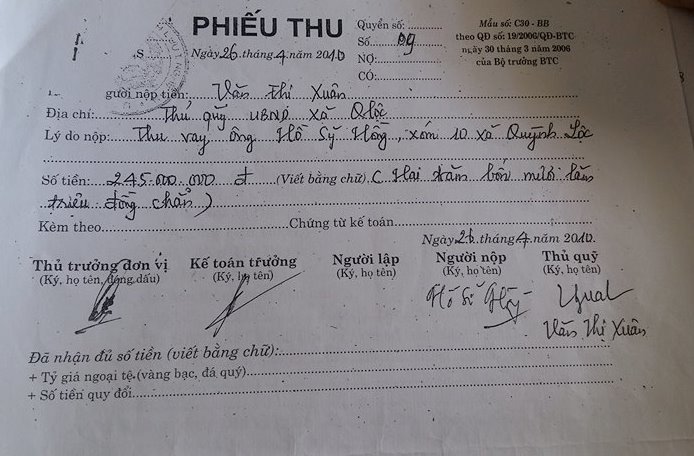 PHIẾU THU
Quyển số:
Số 09
NỢ:
CÓ:
Mẫu số: C30 - BB
theo QĐ số: 19/2006/QĐ-BTC
ngày 30 tháng 3 năm 2006
của Bộ trưởng BTC
S
Ngày 26 tháng 4 năm 2010
gười nộp tiền: Văn Thị Xuân
Địa chỉ: Thủ quỹ UBND xã Q Lộc
Lý do nộp: Thu vay ông Hồ Sỹ Hồng, xóm 10 xã Quỳnh Lộc
Số tiền: 245.000.000 đ (Viết bằng chữ) (Hai trăm bốn mươi lăm
triệu đồng chẵn)
Kèm theo Chứng từ kế toán
Ngày 26 tháng 4 năm 2010.
Thủ trưởng đơn vị Kế toán trưởng Người lập Người nộp Thủ quỹ
(Ký, họ tên, đóng dấu) (Ký, họ tên) (Ký, họ tên) (Ký, họ tên) (Ký, họ tên)
Hồ Sĩ
Văn Thị Xuân
Đã nhận đủ số tiền (viết bằng chữ):
+ Tỷ giá ngoại tệ (vàng bạc, đá quý)
+ Số tiền quy đổi